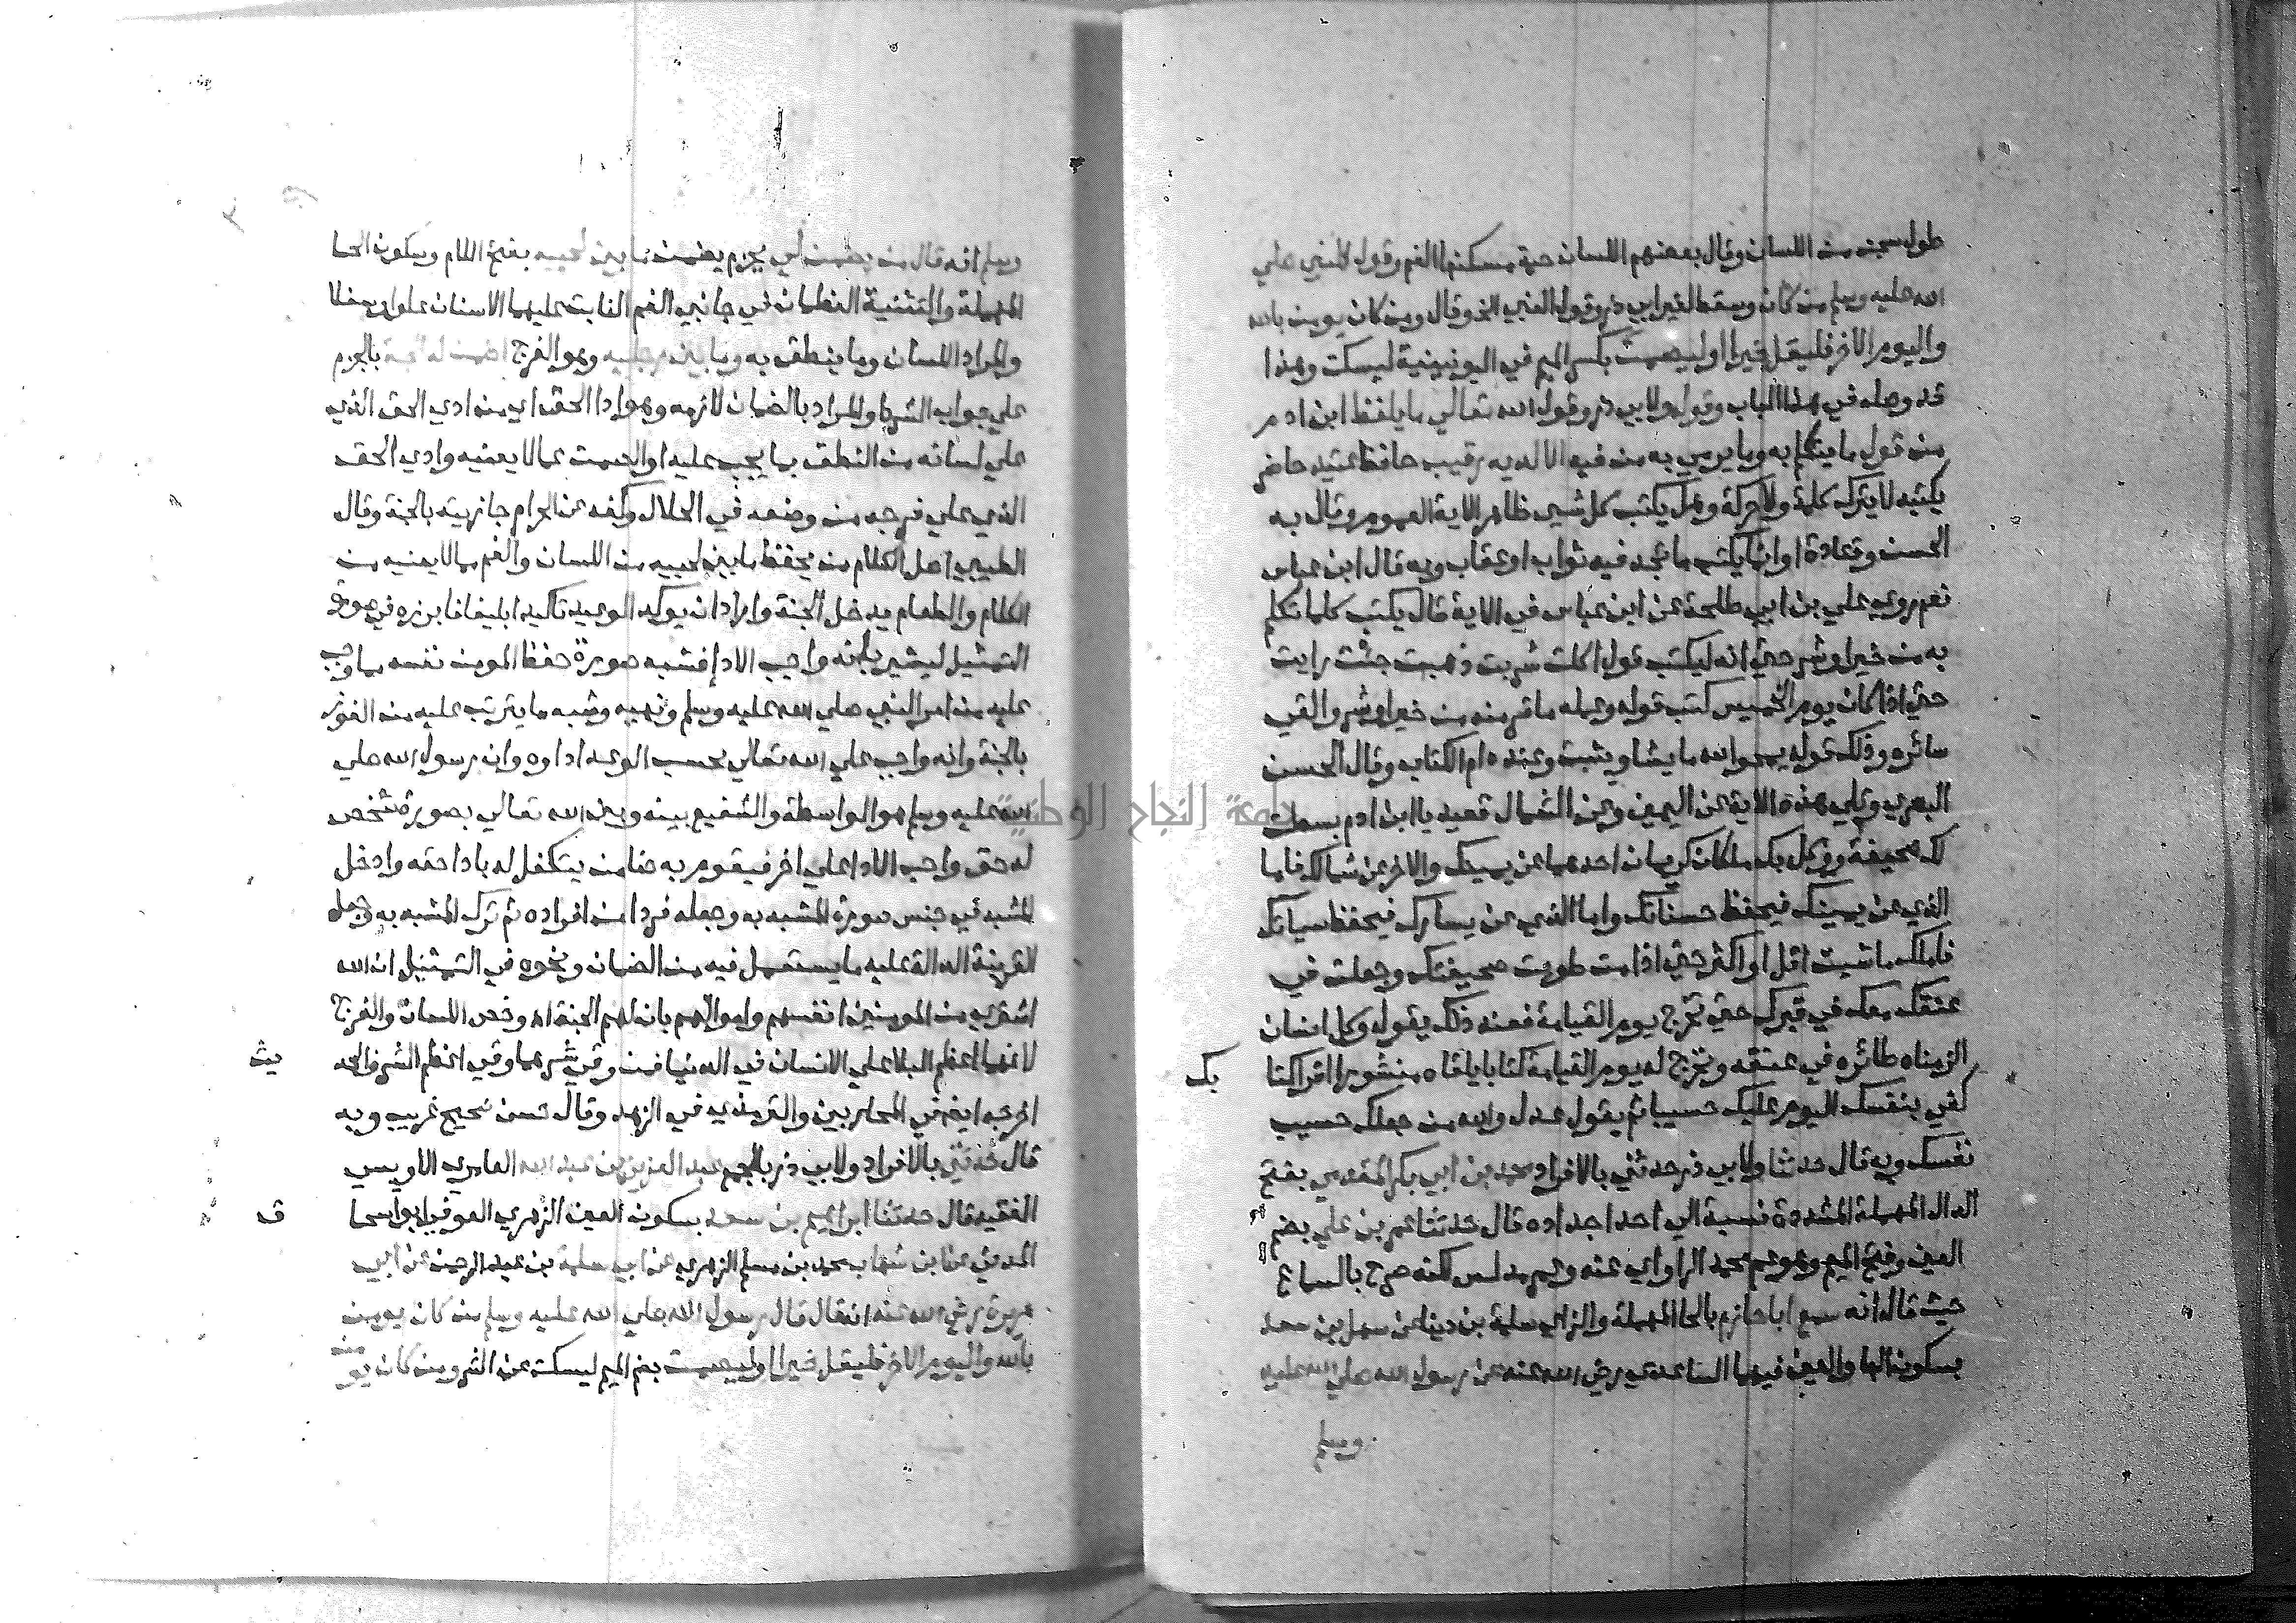 طول سجن من اللسان وقال بعضهم اللسان حية مسكنها الفم وقول النبي صلي
الله عليه وسلم من كان وسقط لغير ابي ذر وقول النبي الخ وقال ومن كان يومن بالله
واليوم الاخر فليقل خيرا او ليصمت بكسر الميم في اليونينية ليسكت وهذا
قد وصله في هذا الباب وقوله ولابي ذر وقول الله تعالي ما يلفظ ابن ادم
من قول ما يتكلم به وما يرمي به من فيه الا لديه رقيب حافظ عتيد حاضر
يكتبه لا يترك كلمة ولا حركة وهل يكتب كل شي ظاهر الاية العموم وقال به
الحسن وقتادة او انما يكتب ما تجد فيه ثواب او عقاب وبه قال ابن عباس
نعم روي علي بن ابي طلحة عن ابن عباس في الاية قال يكتب كلما تكلم
به من خير او شر حتي انه ليكتب قوله اكلت شربت ذهبت جئت رايت
حتي اذا كان يوم الخميس كتب قوله وعمله فاقر منه من خير او شر والقي
سائره وذلك قوله يمحو الله ما يشا ويثبت وعنده ام الكتاب وقال الحسن
البصري وتلي هذه الاية عن اليمين وعن الشمال قعيد يا ابن ادم بسطت
لك صحيفة ووكل بك ملكان كريمان احدهما عن يمينك والاخر عن شمالك فاما
الذي عن يمينك فيحفظ حسناتك واما الذي عن يسارك فيحفظ سياتك
فاملك ما شيت اقل او اكثر حتي اذا مت طويت صحيفتك وجعلت في
عنقك معك في قبرك حتي تخرج يوم القيامة فعند ذلك يقول وكل انسان
الزمناه طائره في عنقه ونخرج له يوم القيامة كتابا يلقاه منشورا اقرا كتا
بك
كفي بنفسك اليوم عليك حسيبا ثم يقول عدل والله من جعلك حسيب
نفسك وبه قال حدثنا ولابي ذر حدثني بالافراد محمد بن ابي بكر المقدمي بفتح
الدال المهملة المشددة نسبة الي احد اجداده قال حدثنا عمر بن علي بضم
العين وفتح الميم وهو عم محمد الراوي عنه وعمر مدلس لكنه صرح بالسماع
حيث قال انه سمع ابا حازم بالحا المهملة والزاي سلمة بن دينار عن سهل بن سعد
بسكون الها والعين فيهما الساعدي رضي الله عنه عن رسول الله صلي الله عليه
وسلم
وسلم انه قال من يضمن لي بجزم يضمن ما بين لحييه بفتح اللام وسكون الحا
المهملة والتثنية العظمان في جانبي الفم النابت عليهما الاسنان علوا وسفلا
والمراد اللسان وما ينطق به وما بين رجليه وهو الفرج اضمن له الجنة بالجزم
علي جواب الشرط والمراد بالضمان لازمه وهو ادا الحق اي من ادي الحق الذي
علي لسانه من النطق بما يجب عليه او الصمت عما لا يعنيه وادي الحق
الذي علي فرجه من وضعه في الحلال وكفه عن الحرام جازيته بالجنة وقال
الطيبي اصل الكلام من يحفظ ما بين لحييه من اللسان والفم مما لا يعنيه من
الكلام والطعام يدخل الجنة واراد ان يوكد الوعيد تاكيدا بليغا فابرزه في صورة
التمثيل ليشير بانه واجب الادا فشبه صورة حفظ المومن نفسه مما وجب
عليه من امر النبي صلي الله عليه وسلم ونهيه وشبه ما يترتب عليه من الفوز
بالجنة وانه واجب علي الله تعالي بحسب الوعد اداوه وان رسول الله صلي
الله عليه وسلم هو الواسطة والشفيع بينه وبين الله تعالي بصورة شخص
له حق واجب الادا علي اخر فيقوم به ضامن يتكفل له بادا حقه وادخل
المشبه في جنس صورة المشبه به وجعله فردا من افراده ثم ترك المشبه به وجعل
القرينة الدالة عليه ما يستعمل فيه من الضمان ونحوه في التمثيل ان الله
اشتري من المومنين انفسهم واموالهم بان لهم الجنة اه وخص اللسان والفرج
لانهما اعظم البلا علي الانسان في الدنيا فمن وقي شرهما وقي اعظم الشر والحد
يث
اخرجه ايضا في المحاربين والترمذي في الزهد وقال حسن صحيح غريب وبه
قال حدثني بالافراد ولابي ذر بالجمع عبد العزيز بن عبد الله العامري الاويسي
الفقيه قال حدثنا ابراهيم بن سعد بسكون العين الزهري العوفي ابو اسحا
ق
المدني عن ابن شهاب محمد بن مسلم الزهري عن ابي سلمة بن عبد الرحمن عن ابي
هريرة رضي الله عنه انه قال قال رسول الله صلي الله عليه وسلم من كان يومن
بالله واليوم الاخر فليقل خيرا او ليصمت بضم الميم ليسكت عن الشر ومن كان يومن
جامعة النجاح الوطنية